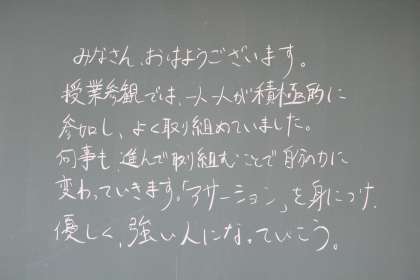 みなさん、おはようございます。
授業参観では、一人一人が積極的に
参加し、よく取り組めていました。
何事も、進んで取り組むことで自分の力に
変わっていきます。「アサーション」を身につけ、
優しく、強い人になっていこう。